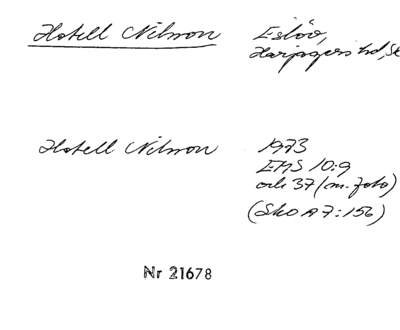 Hotell Nilsson Eslöv,
Harjagers hd, Sk
Hotell Nilsson 1973
EMS 10:9
och 37 (m. foto)
(Sko A 7:156)
Nr 21678